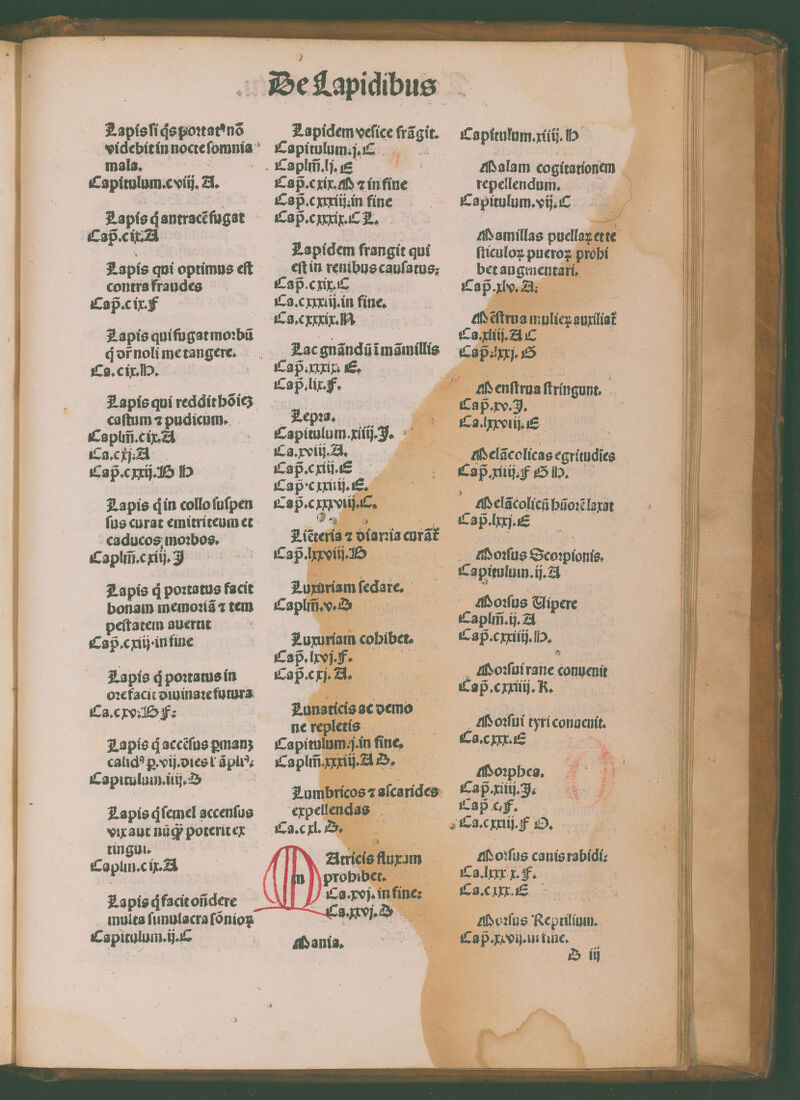 De Lapidibus
Lapis si q̄s portat⁹ nō
videbit in nocte somnia
mala.
Capitulum.cviij. A.
Lapis q̄ antracē fugat
Cap̄.cix.A
Lapis qui optimus est
contra fraudes
Cap̄.cix.f
Lapis qui fugat morbū
q̄ dr̄ noli me tangere.
Ca.cix.H.
Lapis qui reddit hōiēz
castum ⁊ pudicum.
Caplm̄.cix.A
Ca.cxj.A
Cap̄.cxxij.B H
Lapis q̄ in collo suspen
sus curat emitriteum et
caducos morbos.
Caplm̄.cxiij.J
Lapis q̄ portatus facit
bonam memoriā ⁊ tem
pestatem auertit
Cap̄.cxiij.in fine
Lapis q̄ portatus in
ore facit diuinare futura
Ca.cxv.B f:
Lapis q̄ accēsus ꝑmanʒ
calid⁹ ꝑ.vij.dies ł āpli⁹:
Capitulum.iiij.D
Lapis q̄ semel accensus
vix aut nūq̄ꝫ poterit ex
tingui.
Caplm.cix.A
Lapis q̄ facit on̄dere
multa simulacra sōnioꝝ
Capitulum.ij.C
Lapidem vesice frāgit.
Capitulum.j.C
Caplm̄.lj.E
Cap̄.cxix.M ⁊ in fine
Cap̄.cxxxiij.in fine
Cap̄.cxxxix.C L.
Lapidem frangit qui
est in renibus causatus:
Cap̄.cxix.C
Ca.cxxxiij.in fine.
Ca.cxxxix.N
Lac gn̄andū ī māmillis
Cap̄.xxxix E.
Cap̄.lix.f.
Lepra.
Capitulum.xiiij.J.
Ca.xviij.A.
Cap̄.cxiij.E
Cap̄.cxxiiij.E.
Cap̄.cxxxviij.C.
Liēteria ⁊ diarria curāt̄
Cap̄.lxxviij.B
Luxuriam sedare.
Caplm̄.v.D
Luxuriam cohibet.
Cap̄.lxvj.f.
Cap̄.cxj.A.
Lunaticis ac demo
ne repletis
Capitulum.j.in fine.
Caplm̄.xxxiij.A D.
Lumbricos ⁊ ascarides
expellendas
Ca.cxl.D.
Matricis fluxum
prohibet.
Ca.xvj.in fine:
Ca.xxvj.D
Mania.
Capitulum.xiiij.H
Malam cogitationem
repellendum.
Capitulum.vij.C
Mamillas puellaꝝ et te
sticuloꝝ pueroꝝ prohi
bet augmentari.
Cap̄.xlv.A:
Mēstrua mulieꝝ auxiliat̄
Ca.xliij.A C
Cap̄.lxxj.G
Menstrua stringunt.
Cap̄.xv.J.
Ca.lxxviij.E
Melācolicas egritudies
Cap̄.xiiij.f G H.
Melācolicū hūorē laxat
Cap̄.lxxj.E
Morsus Scorpionis.
Capitulum.ij.A
Morsus Vipere
Caplm̄.ij.A
Cap̄.cxxiiij.H.
Morsui rane conuenit
Cap̄.cxxiiij.K.
Morsui tyri conuenit.
Ca.cxxx.E
Morphea.
Cap̄.xiiij.J:
Cap̄.c.f.
Ca.cxxiij.f O.
Morsus canis rabidi:
Ca.lxxxx.f.
Ca.cxxx.E
Morsus Reptilium.
Cap̄.xxvij.in fine.
D iij